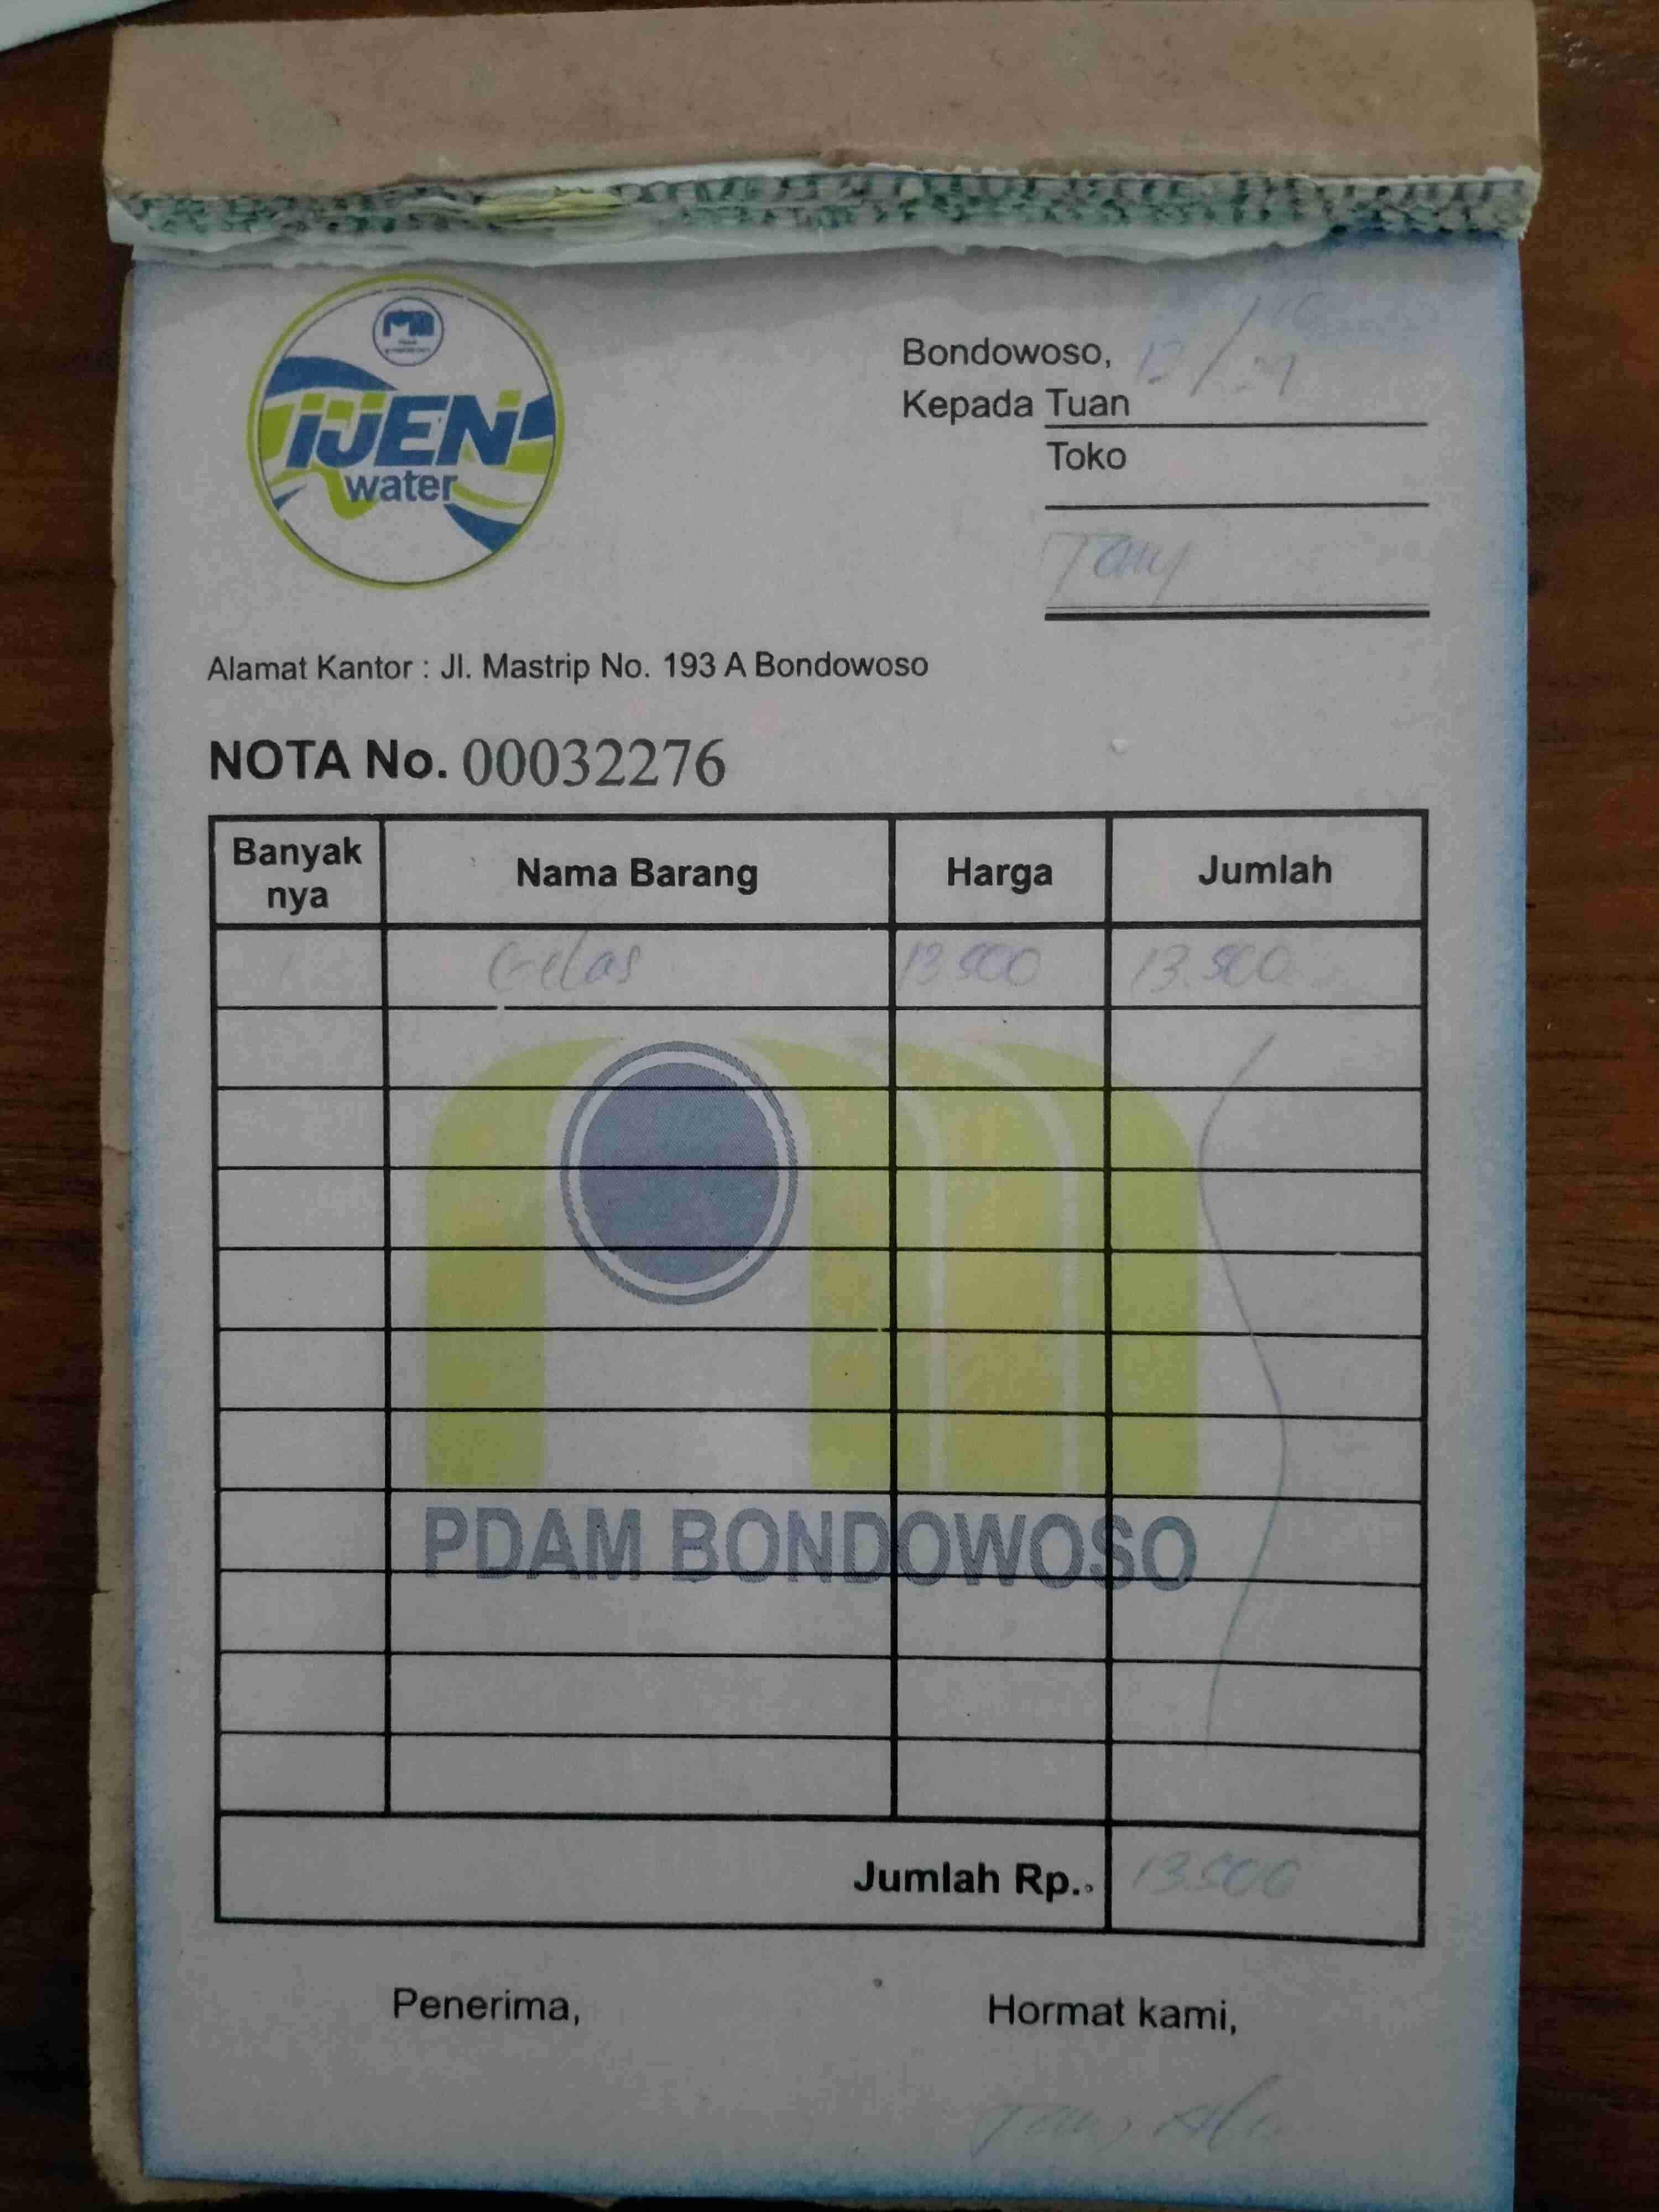 iJEN
water
Bondowoso,
Kepada Tuan
Toko
Tony
Alamat Kantor : Jl. Mastrip No. 193 A Bondowoso
NOTA No. 00032276
Banyak nya Nama Barang Harga Jumlah
1 Gelas 13.500 13.500
PDAM BONDOWOSO
Jumlah Rp.. 13.500
Penerima, Hormat kami,